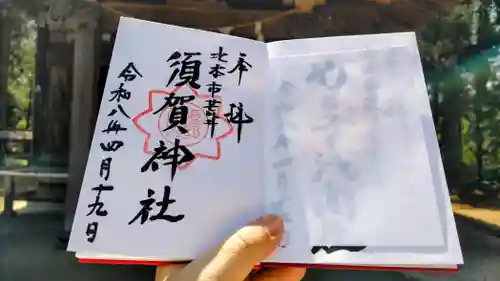 奉拝
北本市荒井
須賀神社
令和八年四月十九日